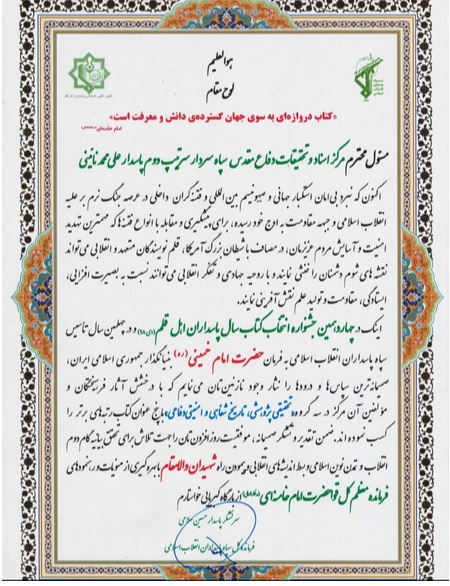 هوالعلیم
لوح مقام
«کتاب دروازه‌ای به سوی جهان گسترده‌ی دانش و معرفت است»
امام خامنه‌ای
مسئول محترم مرکز اسناد و تحقیقات دفاع مقدس سپاه سردار سرتیپ دوم پاسدار علی محمد نائینی
اکنون که نبرد بی‌امان استکبار جهانی و صهیونیسم بین‌المللی و فتنه‌گران داخلی در عرصه جنگ نرم بر علیه
انقلاب اسلامی و جبهه مقاومت به اوج خود رسیده، برای پیشگیری و مقابله با انواع فتنه‌ها که مهمترین تهدید
امنیت و آسایش مردم عزیزمان، در مصاف با شیطان بزرگ آمریکا، قلم نویسندگان متعهد و انقلابی می‌تواند
نقشه‌های شوم دشمنان را خنثی نمایند و با روحیه جهادی و تفکر انقلابی می‌توانند نسبت به بصیرت افزایی،
ایستادگی، مقاومت و تولید علم نقش آفرینی نمایند.
اینک در چهاردهمین جشنواره انتخاب کتاب سال پاسداران اهل قلم و در چهلمین سال تاسیس
سپاه پاسداران انقلاب اسلامی به فرمان حضرت امام خمینی (ره) بنیانگذار جمهوری اسلامی ایران،
صمیمانه‌ترین سپاس‌ها و درودها را نثار وجود نازنین‌تان می‌نمایم که با درخشش آثار فرهیختگان و
مؤلفین آن مرکز در سه گروه «تحقیقی پژوهشی، تاریخ شفاهی و امنیتی دفاعی» با پنج عنوان کتاب رتبه‌های برتر را
کسب نموده‌اند، ضمن تقدیر و تشکر صمیمانه، موفقیت روزافزون‌تان را جهت تلاش برای تحقق بیانیه گام دوم
انقلاب و تمدن نوین اسلامی و بسط اندیشه‌های انقلابی و پیمودن راه شهیدان والامقام با بهره‌گیری از منویات و رهنمودهای
فرمانده معظم کل قوا حضرت امام خامنه‌ای از بارگاه کبریایی خواستارم
سرلشکر پاسدار حسین سلامی
فرمانده کل سپاه پاسداران انقلاب اسلامی